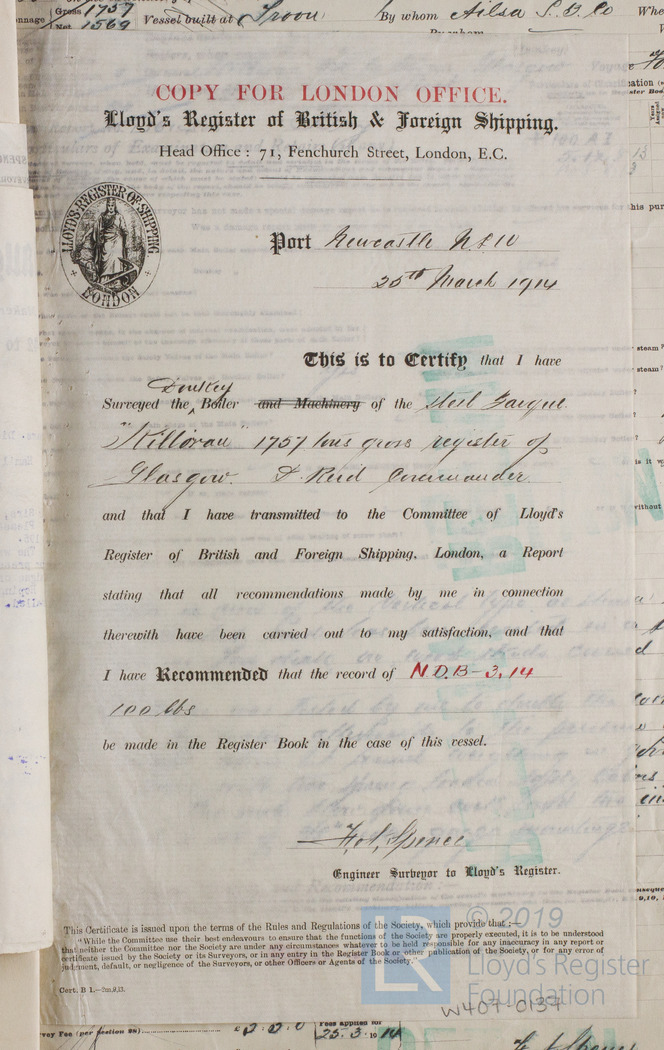 Gross 1757 Vessel built at Troon By whom Ailsa S. B. Co
Net 1569
COPY FOR LONDON OFFICE.
Lloyd's Register of British & Foreign Shipping.
Head Office: 71, Fenchurch Street, London, E.C.
LLOYD'S REGISTER OF SHIPPING
LONDON
Port Newcastle N.S.W
25th March 1914
This is to Certify that I have
Donkey
Surveyed the Boiler and Machinery of the Steel Barque
"Killoran" 1757 tons gross register of
Glasgow. Reid Commander
and that I have transmitted to the Committee of Lloyd's
Register of British and Foreign Shipping, London, a Report
stating that all recommendations made by me in connection
therewith have been carried out to my satisfaction, and that
I have Recommended that the record of NDB-3.14
100 lbs
be made in the Register Book in the case of this vessel.
Spence
Engineer Surveyor to Lloyd's Register.
This Certificate is issued upon the terms of the Rules and Regulations of the Society, which provide that:—
"While the Committee use their best endeavours to ensure that the functions of the Society are properly executed, it is to be understood
that neither the Committee nor the Society are under any circumstances whatever to be held responsible for any inaccuracy in any report or
certificate issued by the Society or its Surveyors, or in any entry in the Register Book or other publication of the Society, or for any error of
judgment, default, or negligence of the Surveyors, or other Officers or Agents of the Society."
Cert. B 1.—2m,9,13.
LR © 2019
Lloyd's Register
Foundation
W407-0137
vey Fee (per section 28) £ 2.2.0 Fees applied for
25.3.1914